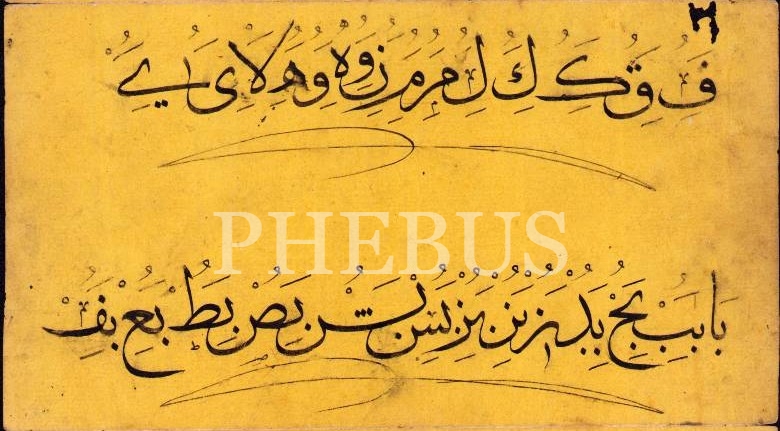 ف ق ك ك ل م م ن و ه و ه لا ى ے
PHEBUS
با بب بج بد بر بن بس بص بط بع بف